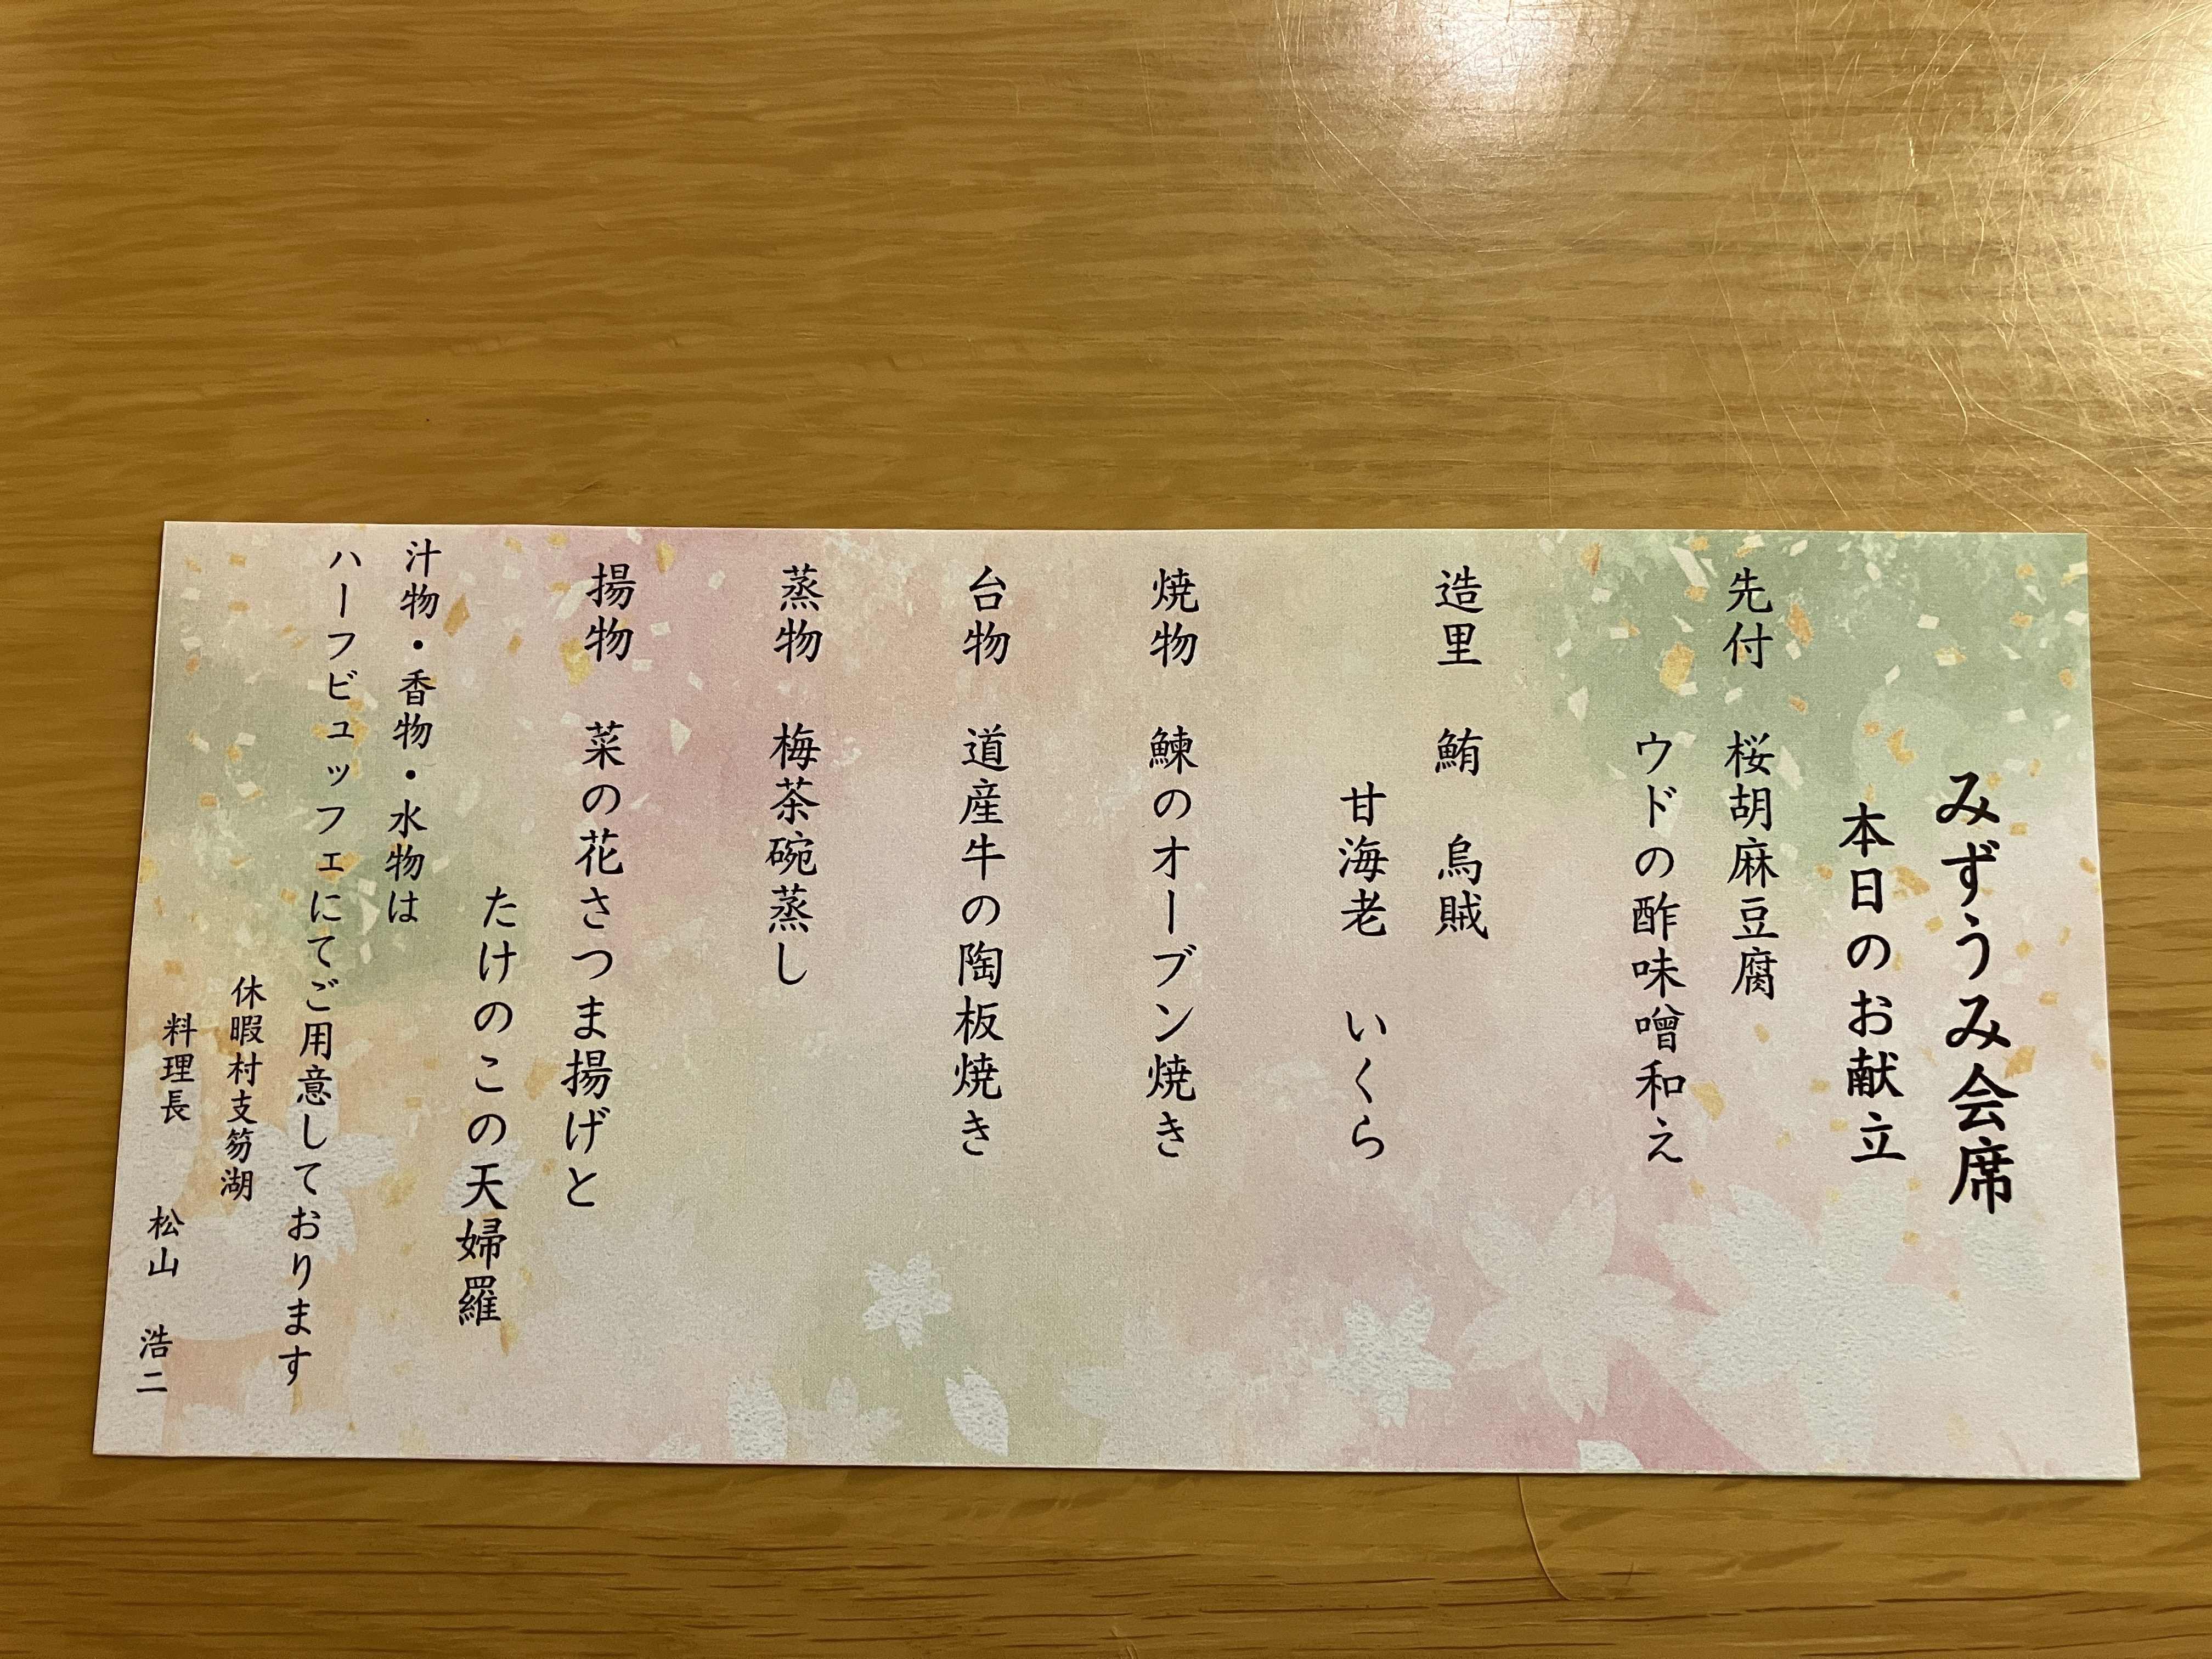 みずうみ会席
本日のお献立
先付　桜胡麻豆腐
ウドの酢味噌和え
造里　鮪　烏賊
甘海老　いくら
焼物　鰊のオーブン焼き
台物　道産牛の陶板焼き
蒸物　梅茶碗蒸し
揚物　菜の花さつま揚げと
たけのこの天婦羅
汁物・香物・水物は
ハーフビュッフェにてご用意しております
休暇村支笏湖
料理長　松山　浩二